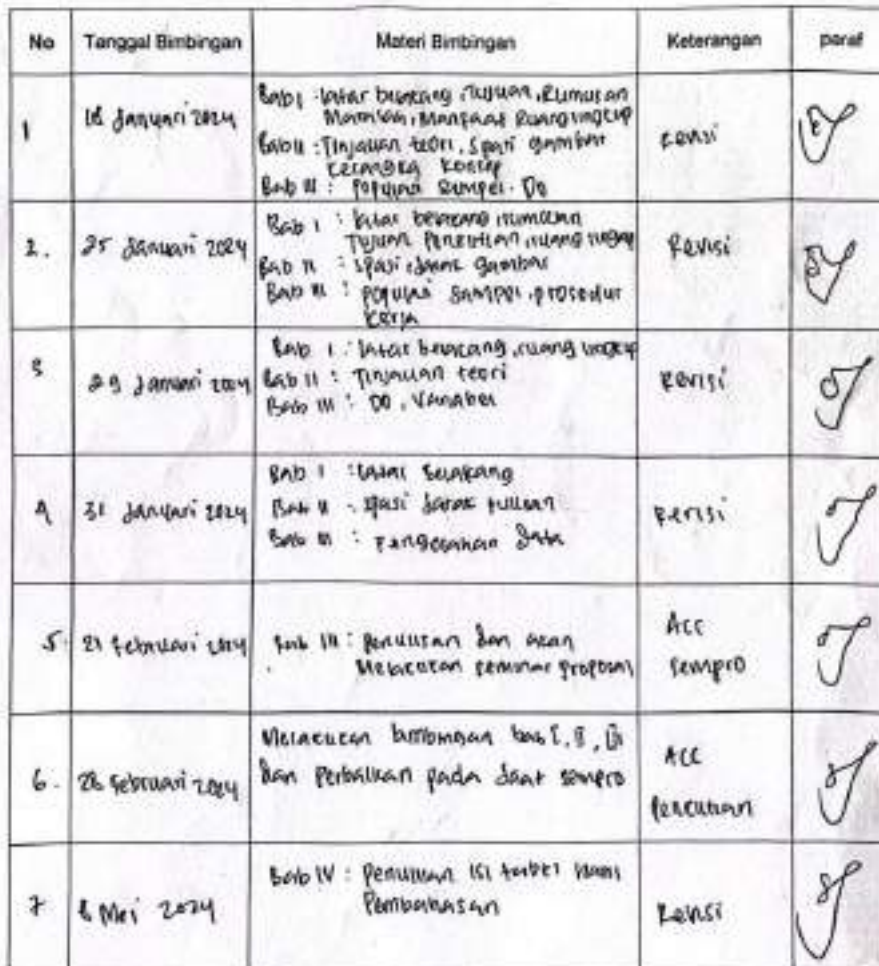 No Tanggal Bimbingan Materi Bimbingan Keterangan paraf
1 18 Januari 2024 Revisi
Bab I : latar belakang, Tujuan, Rumusan
Masalah, Manfaat Ruang lingkup
Bab II : Tinjauan teori, Spasi gambar
kerangka konsep
Bab III : Populasi Sampel. DO
2. 25 Januari 2024 Revisi
Bab I : latar belakang rumusan
Tujuan Penelitian, ruang lingkup
Bab II : spasi jarak gambar
Bab III : populasi sampel, prosedur
kerja
3 29 Januari 2024 Revisi
Bab I : latar belakang, ruang lingkup
Bab II : Tinjauan teori
Bab III : DO, Variabel
4 31 Januari 2024 Revisi
Bab I : latar belakang
Bab II : spasi jarak tulisan
Bab III : Pengolahan data
5. 21 Februari 2024
Bab III : Penulisan dan akan
Melakukan seminar proposal
ACC
Sempro
6. 28 Februari 2024
Melakukan bimbingan bab I, II, III
dan Perbaikan pada saat sempro
ACC
Penelitian
7 6 Mei 2024 Revisi
Bab IV : Penulisan isi tabel hasil
Pembahasan